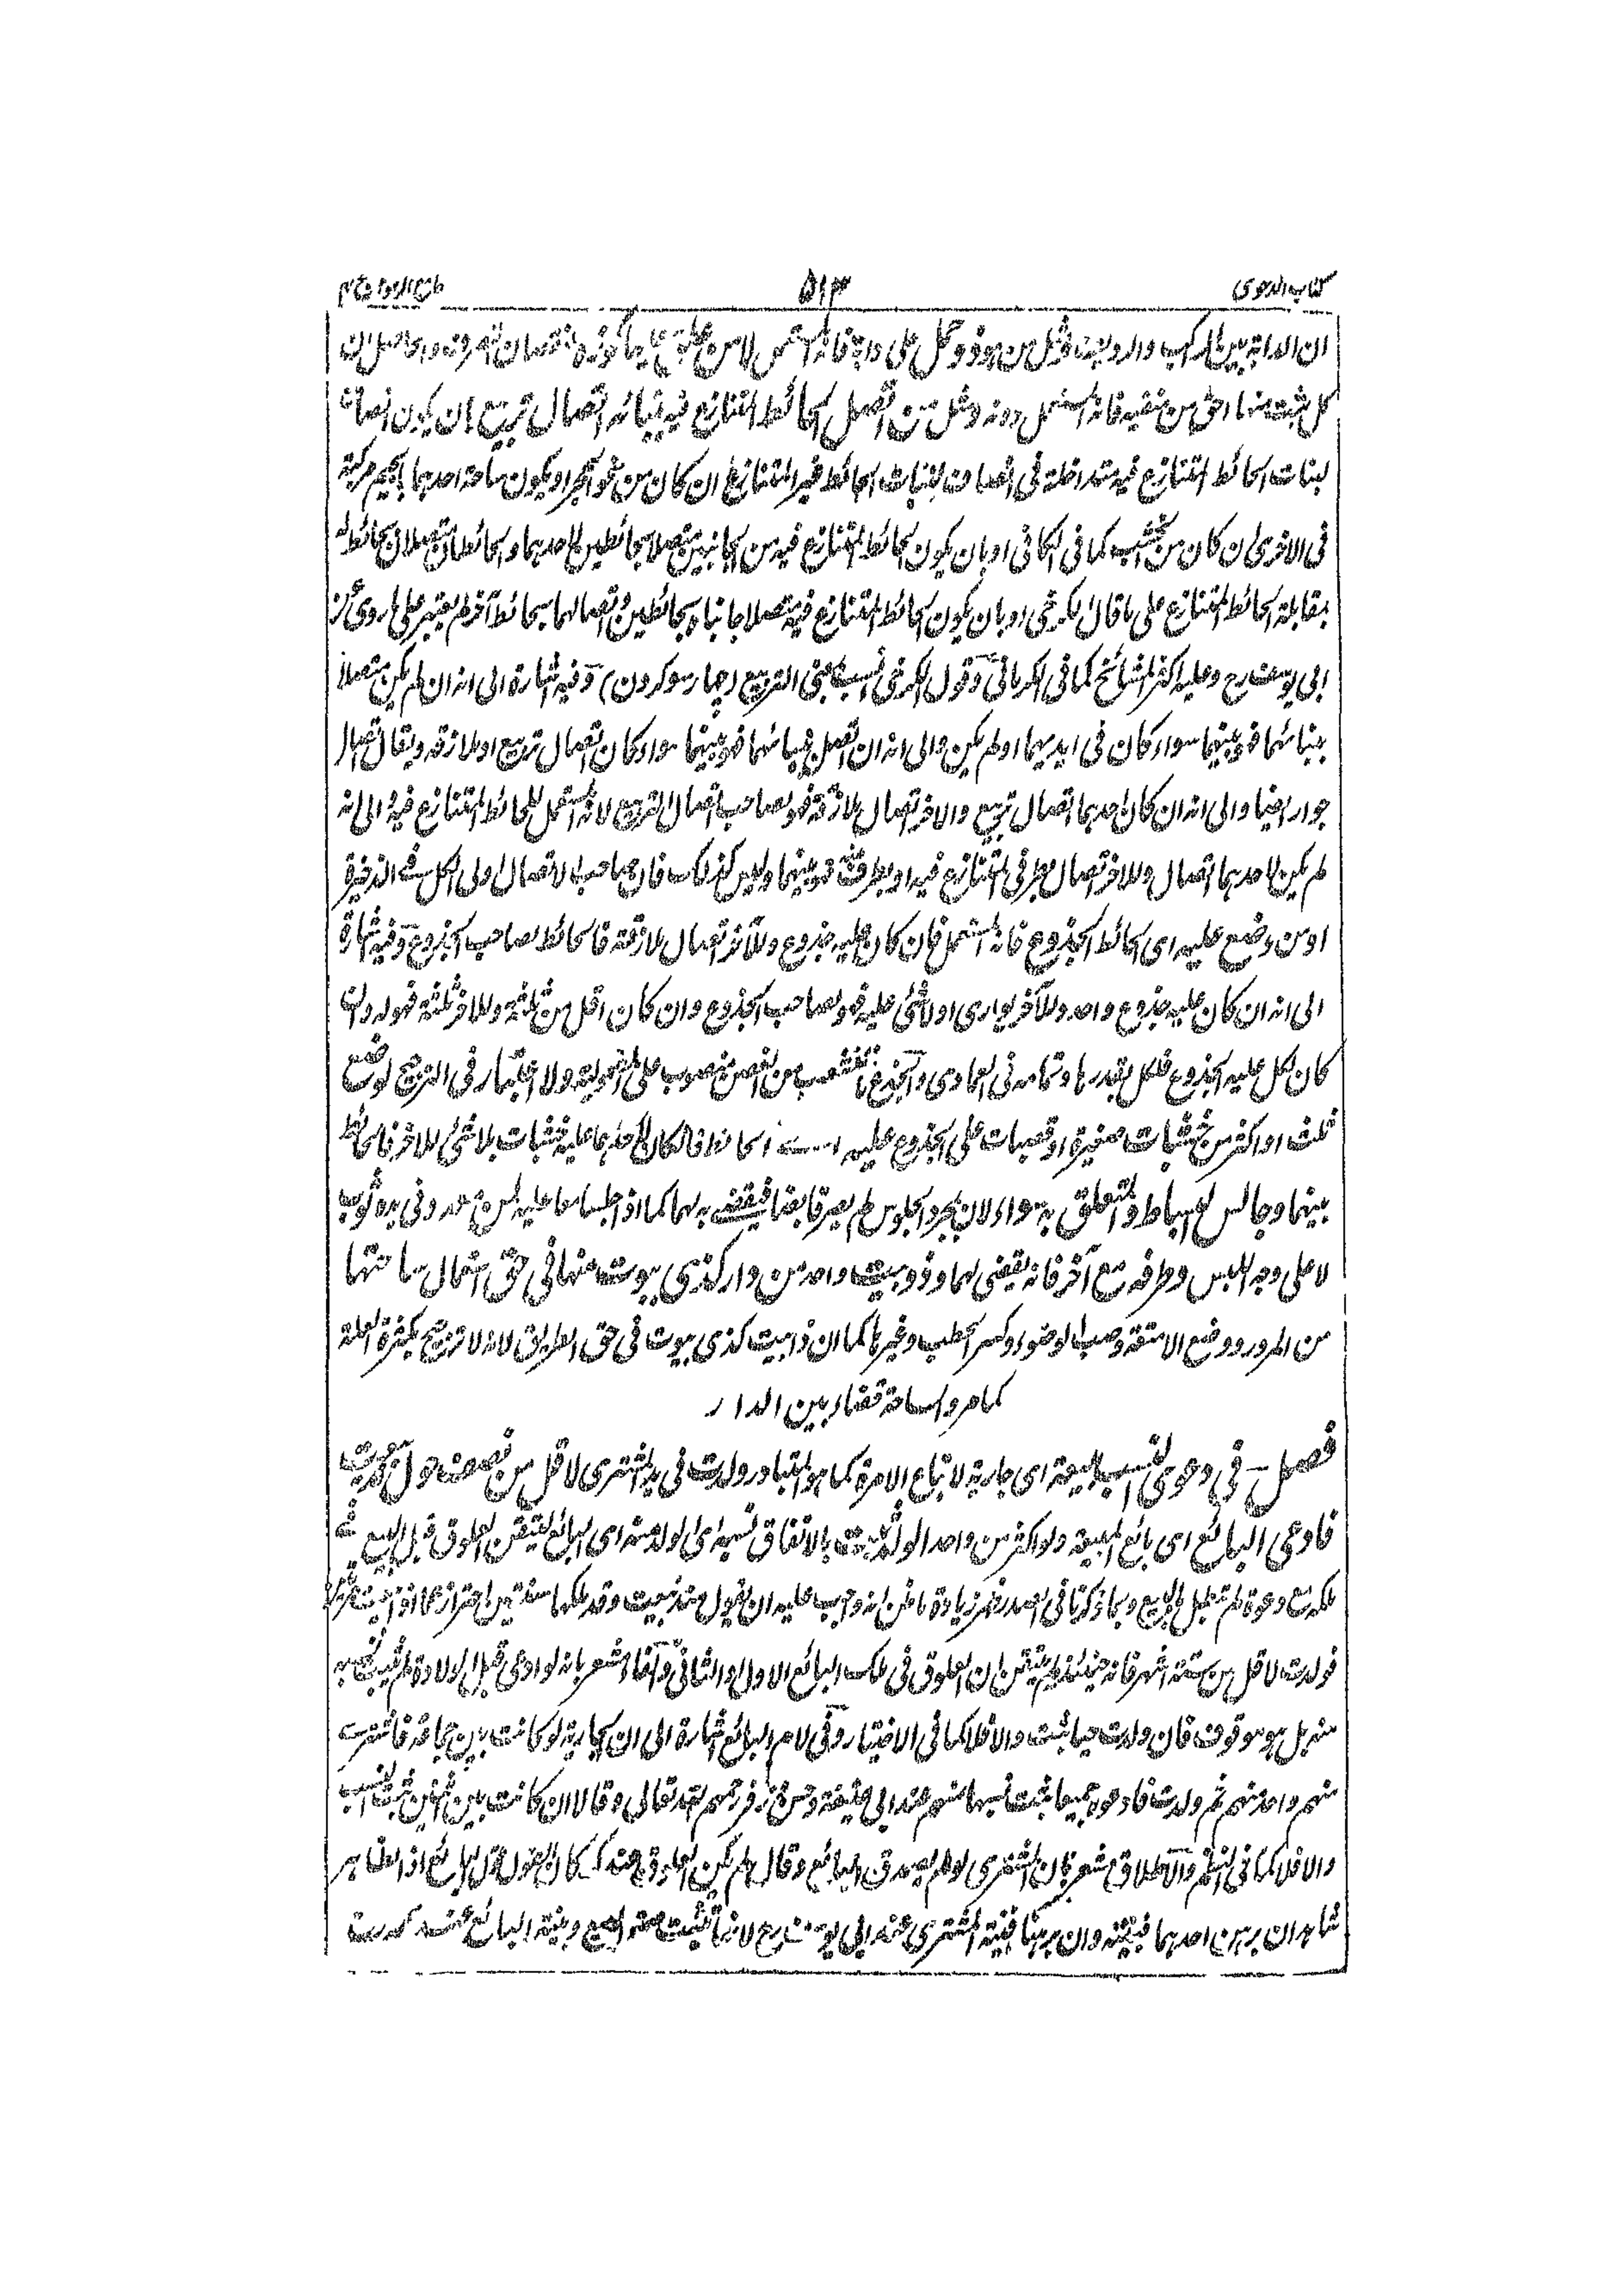 كتاب الدعوى ٥١٣ جامع الرموز ج ٢
ان الدابة بين الراكب والرديف ومثل من هو ذو حمل على دابة فانه المستعمل لا من علق كوزه لنقصان تصرفه والحاصل ان
كل مثبت منهما احق من منفيه فانه المستعمل دونه ومثل من اتصل الحائط المتنازع فيه ببنائه اتصال تربيع بان يكون انصاف
لبنات الحائط المتنازع فيه متداخلة في انصاف لبنات الحائط غير المتنازع ان كان من نحو الحجر او يكون ساحة احدهما بالجيم مركبة
في الاخرى ان كان من خشب كما في الكافى او بان يكون الحائط المتنازع فيه من الجانبين متصلا بحائطين لاحدهما والحائطان متصلان بحائط له
بمقابلة الحائط المتنازع على ما قال الكرخى او بان يكون الحائط المتنازع فيه متصلا جانباه بحائطين واتصالهما بحائط آخر لم يعتبر على ما روى عن
ابى يوسف رح وعليه اكثر المشائخ كما في الكرمانى وقول الكرخى انسب بمعنى التربيع (چهار سو كردن) وفيه اشارة الى انه ان لم يكن متصلا
ببنائهما فهو بينهما سواء كان في ايديهما او لم يكن والى انه ان اتصل ببنائهما فهو بينهما سواء كان اتصال تربيع او ملازقة ويقال اتصال
جوار ايضا والى انه ان كان لاحدهما اتصال تربيع وللآخر اتصال ملازقة فهو لصاحب اتصال التربيع لانه المستعمل للحائط المتنازع فيه والى انه
لم يكن لاحدهما اتصال وللاخر اتصال بطرفى المتنازع فيه او بطرفه فهو بينهما وليس كذلك فان صاحب الاتصال اولى الكل في الذخيرة
او من وضع عليه اى الحائط الجذوع فانه المستعمل فان كان عليه جذوع وللآخر اتصال ملازقة فالحائط لصاحب الجذوع وفيه اشارة
الى انه ان كان عليه جذوع واحد وللآخر بوارى او لا شئ عليه فهو لصاحب الجذوع وان كان اقل من ثلثة وللاخر ثلثة فهو له وان
كان لكل عليه الجذوع فلكل بقدرها وتمامه في العمادى والجذع ما تشعب من الغصن منصوب على المفعولية ولا اعتبار في الترجيح لوضع
ثلث او اكثر من خشبات صغيرة او قصبات على الجذوع عليه الحائط فان كان لاحدهما عليه خشبات بلا شئ للاخر فالحائط
بينهما وجالس البساط والمتعلق به سواء لان بمجرد الجلوس لم يصر قابضا فيقضى به لهما كما اذا جلسا معا عليه لمن وفى يده ثوب
لا على وجه اللبس وطرفه مع آخر فانه يقضى لهما وذو بيت واحد من دار كذى بيوت منها في حق استعمال ساحتها
من المرور ووضع الامتعة وصب الوضوء وكسر الحطب وغيرها كما ان ذا بيت كذى بيوت في حق الطريق لانه لا ترجيح بكثرة العلة
كما مر والساحة فضاء بين الدار
فصل في دعوى النسب مبيعة اى جارية لاتباع الامرة كما هو المتبادر ولدت في يد المشترى لاقل من نصف حول
فادعى البائع اى بائع المبيعة ولو اكثر من واحد الولد ثبت بالاتفاق نسبه اى الولد منه اى البائع لتيقن العلوق قبل البيع في
ملكه مع دعوة لم تبطل بالبيع وبما ذكرنا في الصدر ظهر زيادة ما ظن انه وجب عليه ان يقول منذ بيعت وقد ملكها سنتين احترازا عما اذا بيعت
فولدت لاقل من ستة اشهر فانه حينئذ لم يتيقن ان العلوق في ملك البائع الاول او الثانى والفاء مشعر بانه لو ادعى قبل الولادة لم يثبت نسبه
منه بل هو موقوف فان ولدت حيا ثبت والا فلا كما في الاختيار وفي لام البائع اشارة الى ان الجارية لو كانت بين جماعة فاشترى
منهم واحد منهم ثم ولدت فادعوه جميعا ثبت نسبها منهم عند ابى حنيفة وحسن وزفر رحمهم الله تعالى وقالا ان كانت بين اثنين ثبت النسب
والا فلا كما في النظم والاطلاق مشعر بان المشترى لو لم يصدق البائع وقال لم يكن العلوق عندك كان القول قول البائع اذ الظاهر
شاهد ان برهن احدهما فبينته وان برهنا فبينة المشترى عند ابى يوسف رح لانها تثبت صحة البيع وبينة البائع عند محمد رح